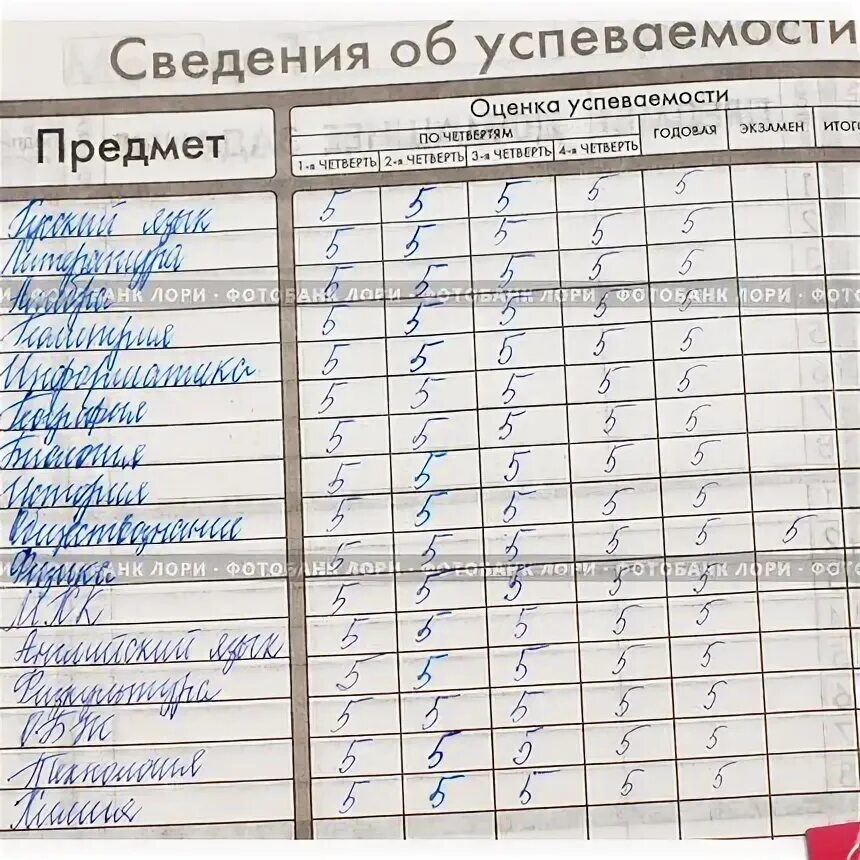 Сведения об успеваемости
Предмет
Оценка успеваемости
ПО ЧЕТВЕРТЯМ ГОДОВАЯ ЭКЗАМЕН ИТОГО
1-я ЧЕТВЕРТЬ 2-я ЧЕТВЕРТЬ 3-я ЧЕТВЕРТЬ 4-я ЧЕТВЕРТЬ
Русский язык 5 5 5 5 5
Литература 5 5 5 5 5
Алгебра 5 5 5 5 5
ФОТОБАНК ЛОРИ · ФОТОБАНК ЛОРИ · ФОТОБАНК ЛОРИ · ФОТОБАНК ЛОРИ · ФОТО
Геометрия 5 5 5 5 5
Информатика 5 5 5 5 5
География 5 5 5 5 5
Биология 5 5 5 5 5
История 5 5 5 5 5
Обществознание 5 5 5 5 5 5
Физика 5 5 5 5 5
ФОТОБАНК ЛОРИ · ФОТОБАНК ЛОРИ · ФОТОБАНК ЛОРИ · ФОТОБАНК ЛОРИ · ФОТО
МХК 5 5 5 5 5
Английский язык 5 5 5 5 5
Физкультура 5 5 5 5 5
ОБЖ 5 5 5 5 5
Технология 5 5 5 5 5
Химия 5 5 5 5 5